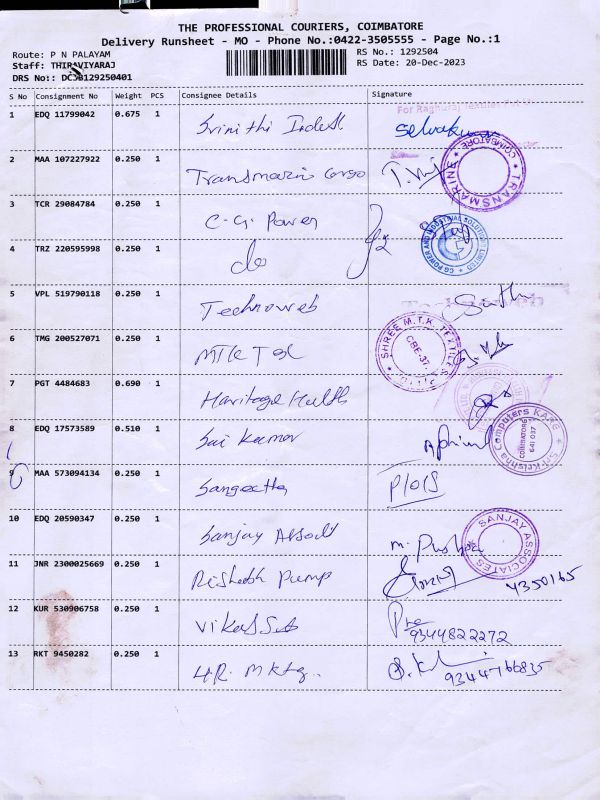 THE PROFESSIONAL COURIERS, COIMBATORE
Delivery Runsheet - MO - Phone No.:0422-3505555 - Page No.:1
Route: P N PALAYAM RS No.: 1292504
Staff: THIRAVIYARAJ RS Date: 20-Dec-2023
DRS No:: DCJB129250401
S No Consignment No Weight PCS Consignee Details Signature
For Raghuraj
1 EDQ 11799042 0.675 1 Srinithi
2 MAA 107227922 0.250 1 Transmarine Cargo
TRANSMARINE COIMBATORE
3 TCR 29084784 0.250 1 C.G. Power
CG POWER AND INDUSTRIAL SOLUTIONS LIMITED
4 TRZ 220595998 0.250 1 do
5 VPL 519790118 0.250 1 Technoweb
SHREE M.T.K. TEXTILES CBE-37.
6 TMG 200527071 0.250 1 MTK Tex
7 PGT 4484683 0.690 1 Haritage
8 EDQ 17573589 0.510 1 Sai Kumar
Sri Krishna Computers KARE COIMBATORE 641 037
9 MAA 573094134 0.250 1 Sangeetha
10 EDQ 20590347 0.250 1 Sanjay Assoct M. Pushpa
SANJAY ASSOCIATES
11 JNR 2300025669 0.250 1 Rishabh Pump 4350165
12 KUR 530906758 0.250 1 Vikas
9344822272
13 RKT 9450282 0.250 1 H.R. Mktg.
9344766835